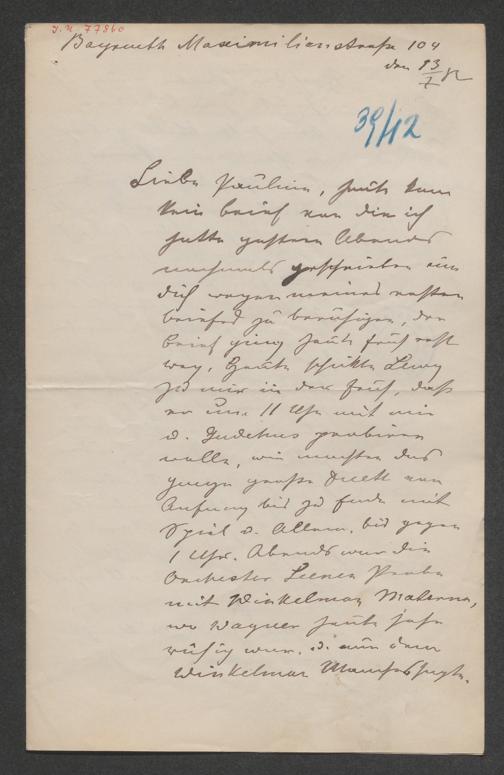 J.N. 77860
Bayreuth Maximilianstraße 104
den 13/7 82
39/42
Liebe Pauline, heute kam
kein brief von dir ich
hatte gestern Abends
nochmals geschrieben um
dich wegen meines ersten
briefes zu beruhigen, der
brief ging heute früh erst
weg, Heute schickte Levy
zu mir in der früh, daß
er um 11 Uhr mit mir
u. Gudehus probiren
wolle, wir machten das
ganze große Duett von
Anfang bis zu Ende mit
Spiel u. Allem, bis gegen
1 Uhr. Abends war die
Orchester Scenen Probe
mit Winkelman Materna,
wo Wagner heute sehr
ruhig war, u. nur dem
Winkelman Manches sagte.